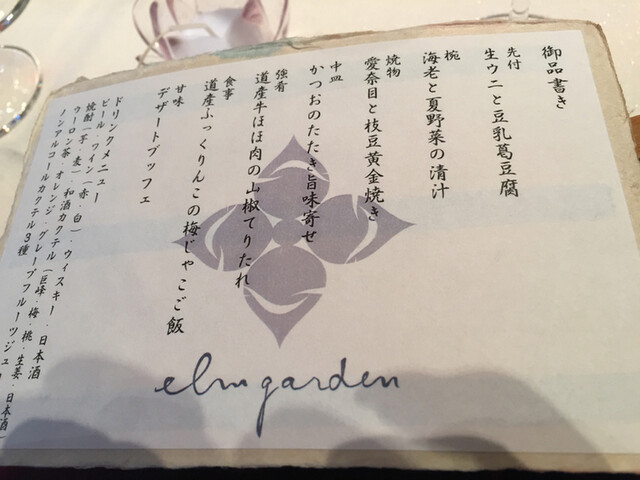 御品書き
先付
生ウニと豆乳葛豆腐
椀
海老と夏野菜の清汁
焼物
愛奈目と枝豆黄金焼き
中皿
かつおのたたき旨味寄せ
強肴
道産牛ほほ肉の山椒てりたれ
食事
道産ふっくりんこの梅じゃこご飯
甘味
デザートブッフェ
ドリンクメニュー
ビール・ワイン（赤・白）・ウィスキー・日本酒
焼酎（芋・麦）・和酒カクテル（巨峰・梅・桃・生姜・日本酒）
ウーロン茶・オレンジ・グレープフルーツジュ
ノンアルコールカクテル3種
elm garden